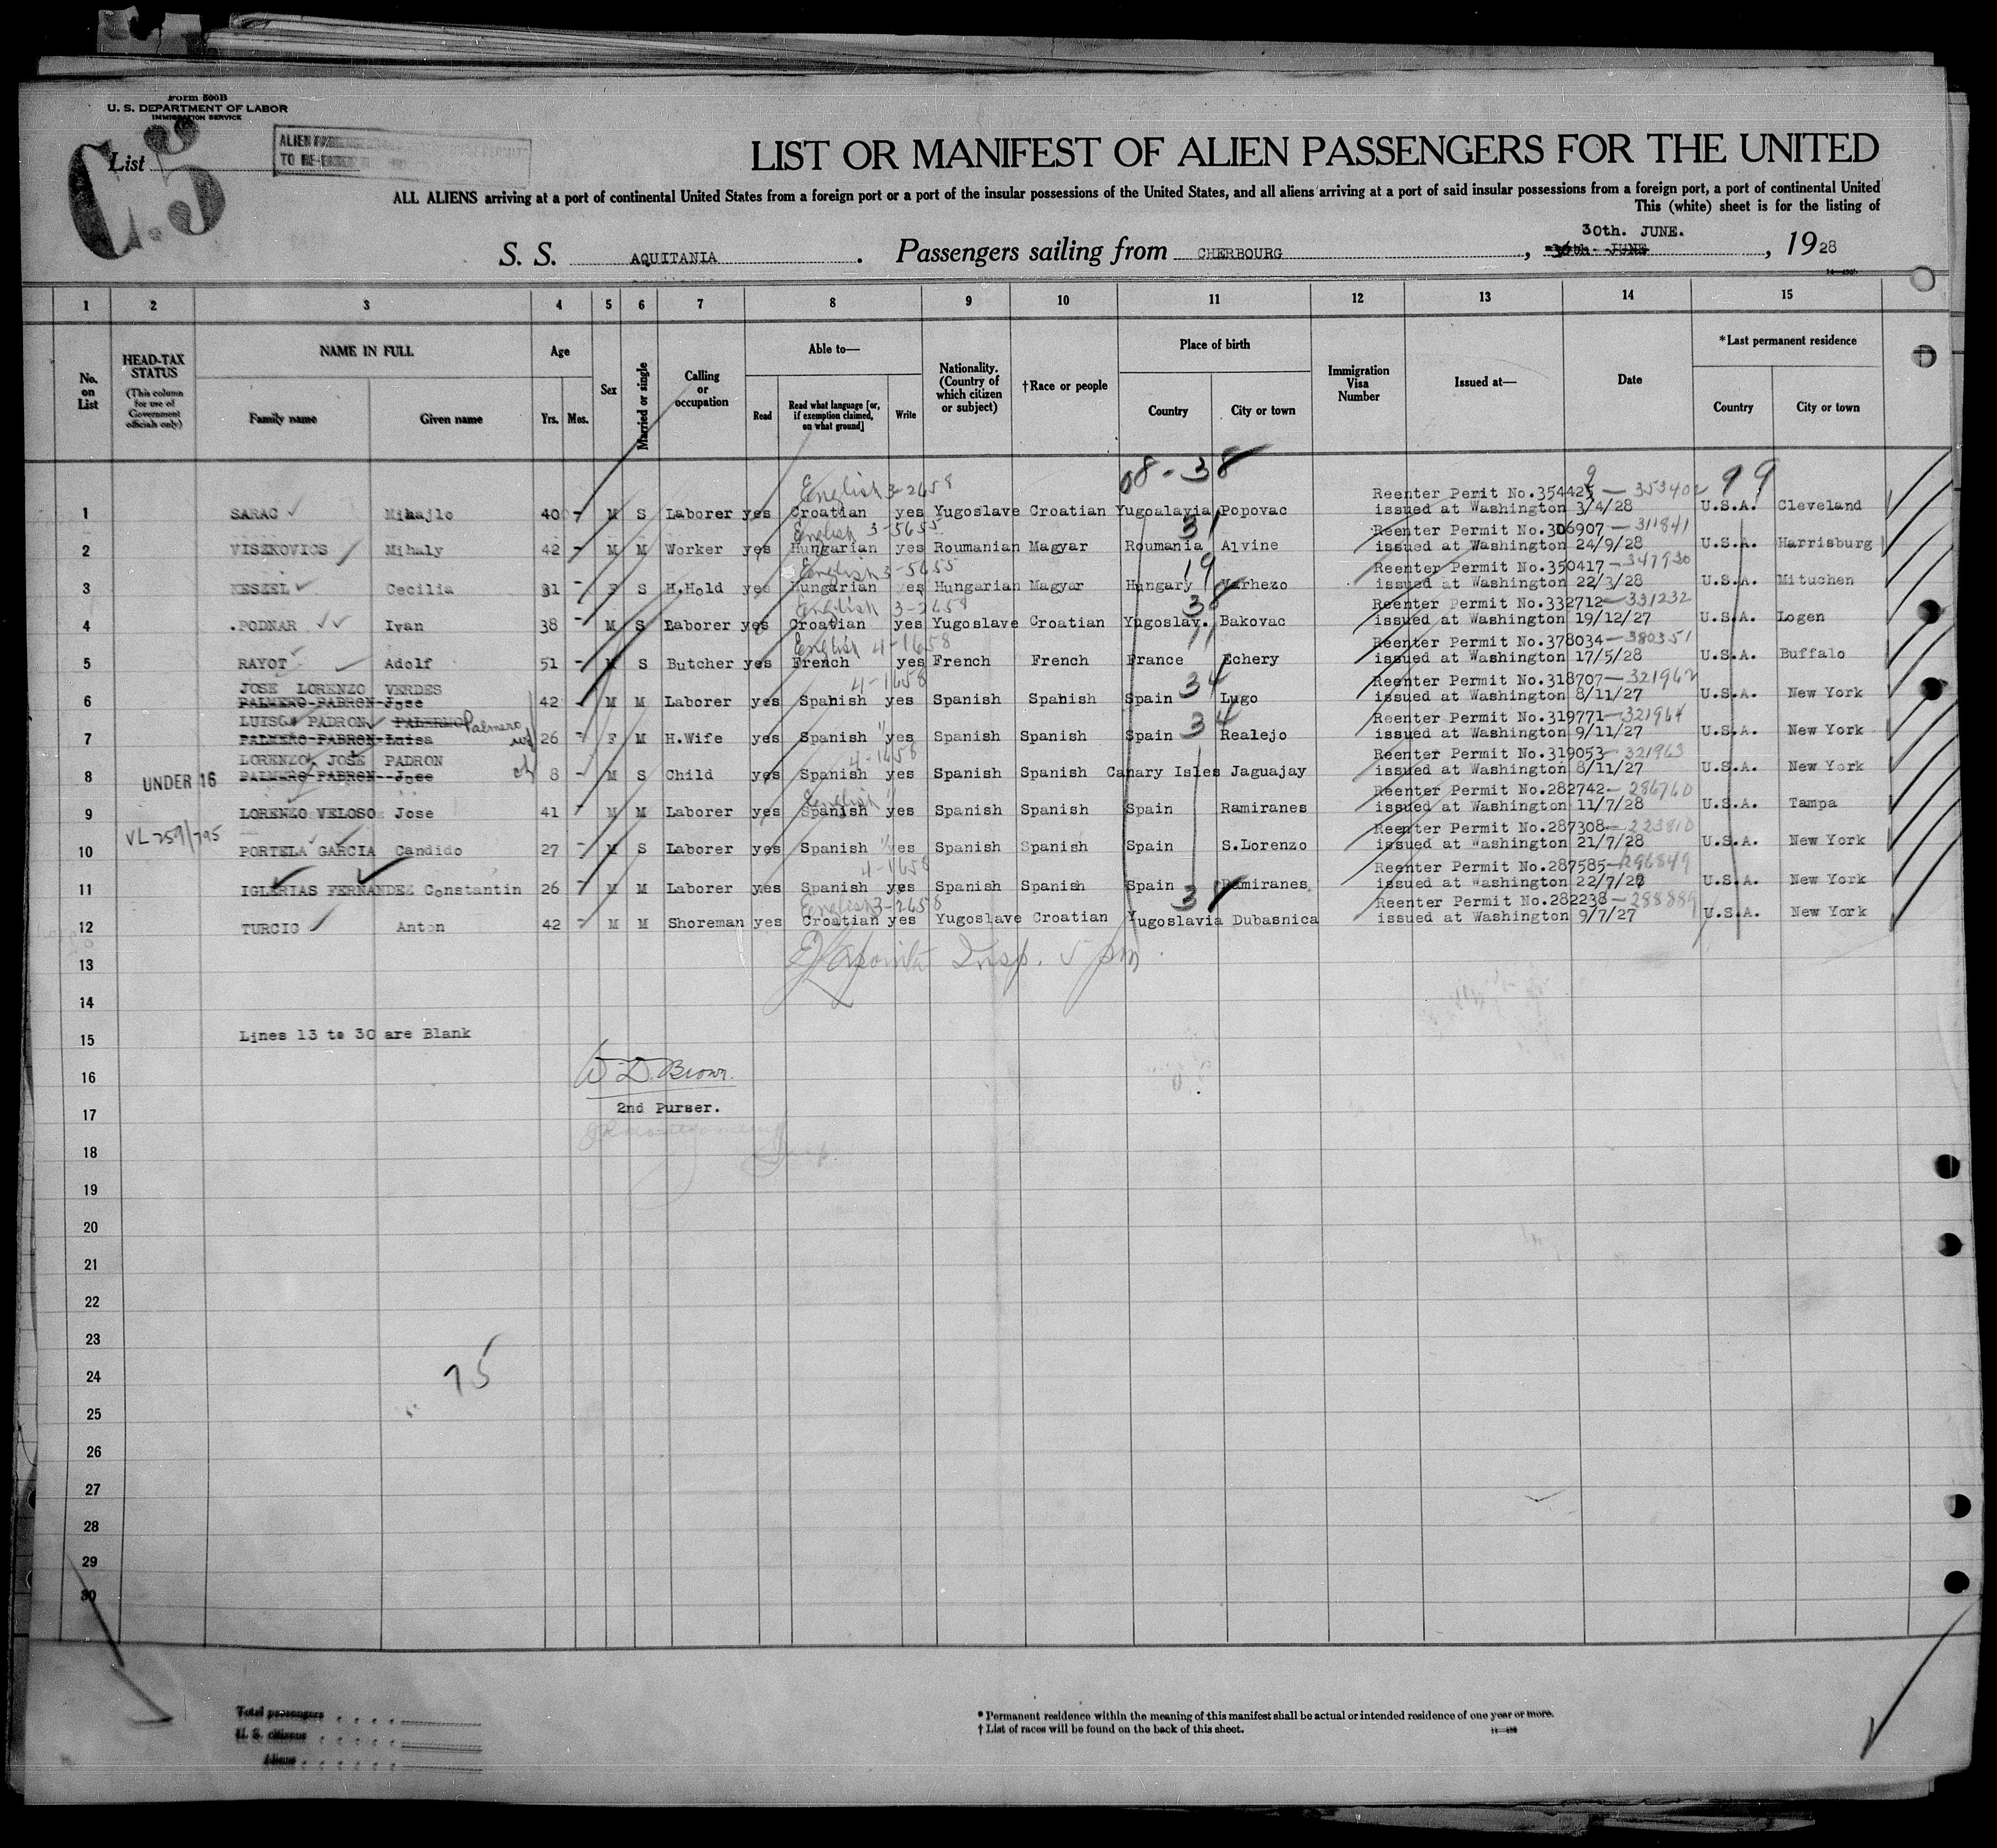 Form 500B
U. S. DEPARTMENT OF LABOR
IMMIGRATION SERVICE
List
C.5
ALIEN
TO RE-ENTER
LIST OR MANIFEST OF ALIEN PASSENGERS FOR THE UNITED
ALL ALIENS arriving at a port of continental United States from a foreign port or a port of the insular possessions of the United States, and all aliens arriving at a port of said insular possessions from a foreign port, a port of continental United
This (white) sheet is for the listing of
30th. JUNE.
S. S. AQUITANIA. Passengers sailing from CHERBOURG, 30th. JUNE, 1928
1 2 3 4 5 6 7 8 9 10 11 12 13 14 15
No. on List
HEAD-TAX STATUS
(This column for use of Government officials only)
NAME IN FULL
Family name Given name
Age
Yrs. Mos.
Sex
Married or single
Calling or occupation
Able to—
Read
Read what language [or, if exemption claimed, on what ground]
Write
Nationality. (Country of which citizen or subject)
†Race or people
Place of birth
Country City or town
Immigration Visa Number
Issued at—
Date
*Last permanent residence
Country City or town
08-38 99
English 3-2658 Reenter Permit No.354425 9 — 353402
1 SARAC Mihajlo 40 - M S Laborer yes Croatian yes Yugoslave Croatian Yugoalavia Popovac issued at Washington 3/4/28 U.S.A. Cleveland
English 3-5655 31 Reenter Permit No.306907 — 311841
2 VISZKOVICS Mihaly 42 - M M Worker yes Hungarian yes Roumanian Magyar Roumania Alvine issued at Washington 24/9/28 U.S.A. Harrisburg
English 3-5655 19 Reenter Permit No.350417 — 347930
3 KESZEL Cecilia 31 - F S H.Hold yes Hungarian yes Hungarian Magyar Hungary Varhezo issued at Washington 22/3/28 U.S.A. Mituchen
English 3-2658 38 Reenter Permit No.332712 — 331232
4 .PODNAR Ivan 38 - M S Laborer yes Croatian yes Yugoslave Croatian Yugoslav. Bakovac issued at Washington 19/12/27 U.S.A. Logen
English 4-1658 11 Reenter Permit No.378034 — 380351
5 RAYOT Adolf 51 - M S Butcher yes French yes French French France Echery issued at Washington 17/5/28 U.S.A. Buffalo
JOSE LORENZO VERDES 4-1658 34 Reenter Permit No.318707 — 321962
6 PALMERO-PADRON-Jose 42 - M M Laborer yes Spanish yes Spanish Spahish Spain Lugo issued at Washington 8/11/27 U.S.A. New York
LUISA PADRON PALERMO Palmero 34 Reenter Permit No.319771 — 321964
7 PALMERO-PADRON-Luisa wf 26 - F M H.Wife yes Spanish yes Spanish Spanish Spain Realejo issued at Washington 9/11/27 U.S.A. New York
LORENZO, JOSE PADRON 4-1658 Reenter Permit No.319053 — 321963
8 UNDER 16 PALMERO-PADRON--Jose ch 8 - M S Child yes Spanish yes Spanish Spanish Canary Isles Jaguajay issued at Washington 8/11/27 U.S.A. New York
English " Reenter Permit No.282742 — 286760
9 LORENZO VELOSO Jose 41 - M M Laborer yes Spanish yes Spanish Spanish Spain Ramiranes issued at Washington 11/7/28 U.S.A. Tampa
VL 259/795 Reenter Permit No.287308 — 223810
10 PORTELA GARCIA Candido 27 - M S Laborer yes Spanish yes Spanish Spanish Spain S.Lorenzo issued at Washington 21/7/28 U.S.A. New York
4-1658 Reenter Permit No.287585 — 296849
11 IGLERIAS FERNANDEZ Constantin 26 - M M Laborer yes Spanish yes Spanish Spanish Spain Ramiranes issued at Washington 22/7/28 U.S.A. New York
English 3-2658 3 Reenter Permit No.282238 — 288889
12 TURCIC Anton 42 - M M Shoreman yes Croatian yes Yugoslave Croatian Yugoslavia Dubasnica issued at Washington 9/7/27 U.S.A. New York
13 Insp. 5 pm
14
15 Lines 13 to 30 are Blank
16 W D. Brown.
17 2nd Purser.
18
19
20
21
22
23
24 75
25
26
27
28
29
30
Total passengers
U. S. citizens
Aliens
* Permanent residence within the meaning of this manifest shall be actual or intended residence of one year or more.
† List of races will be found on the back of this sheet.